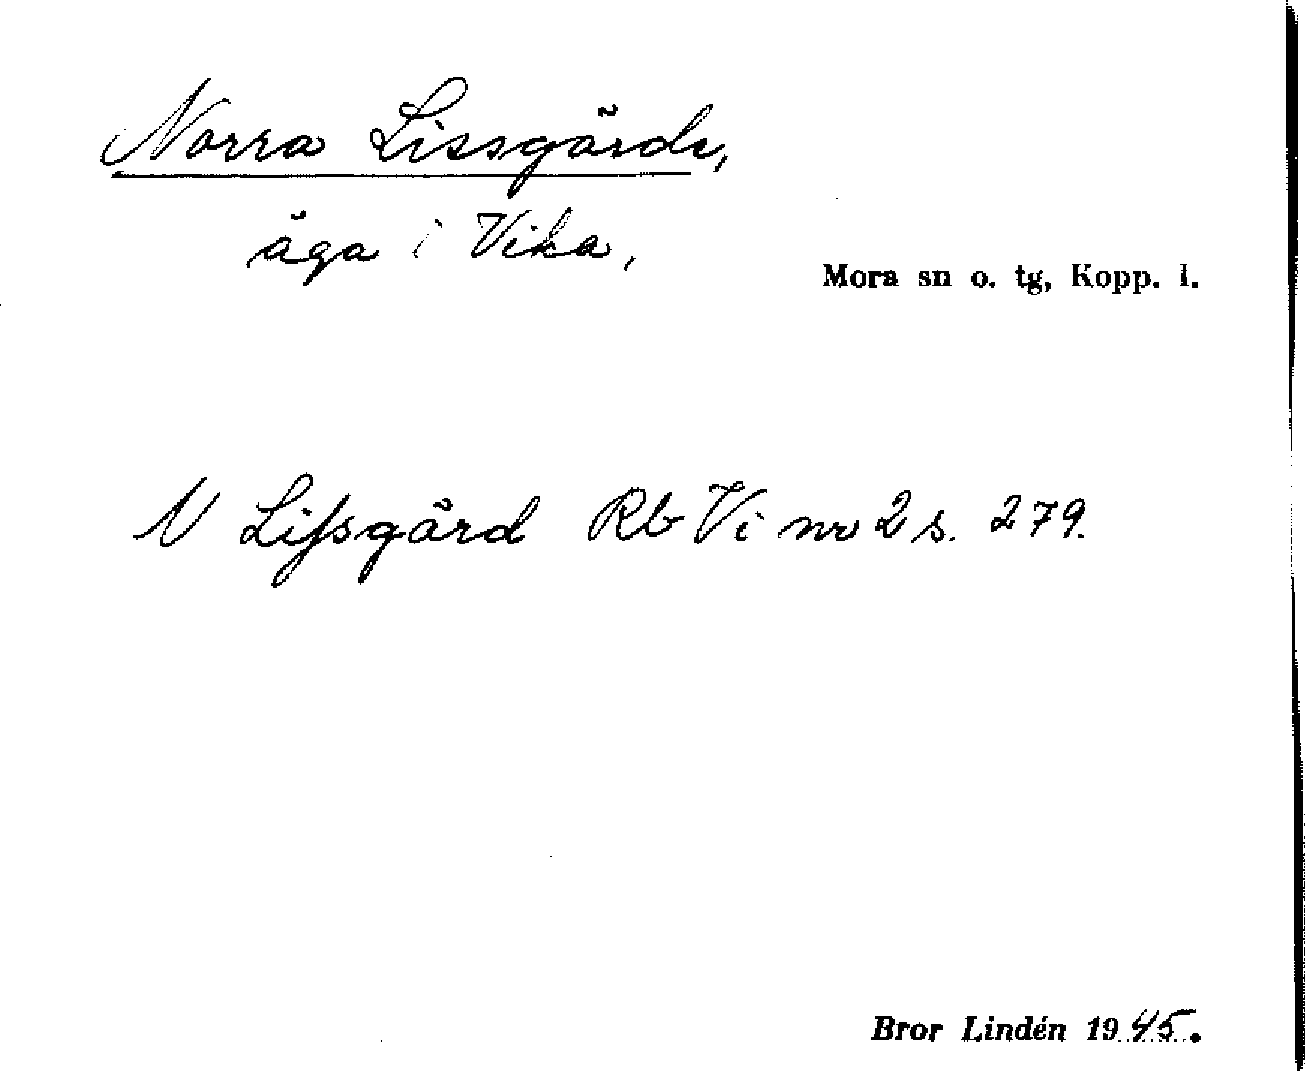 Norra Lissgärde,
äga i Vika,
Mora sn o. tg, Kopp. l.
N Lissgärd Rb Vi nr 2 s. 279.
Bror Lindén 1945.